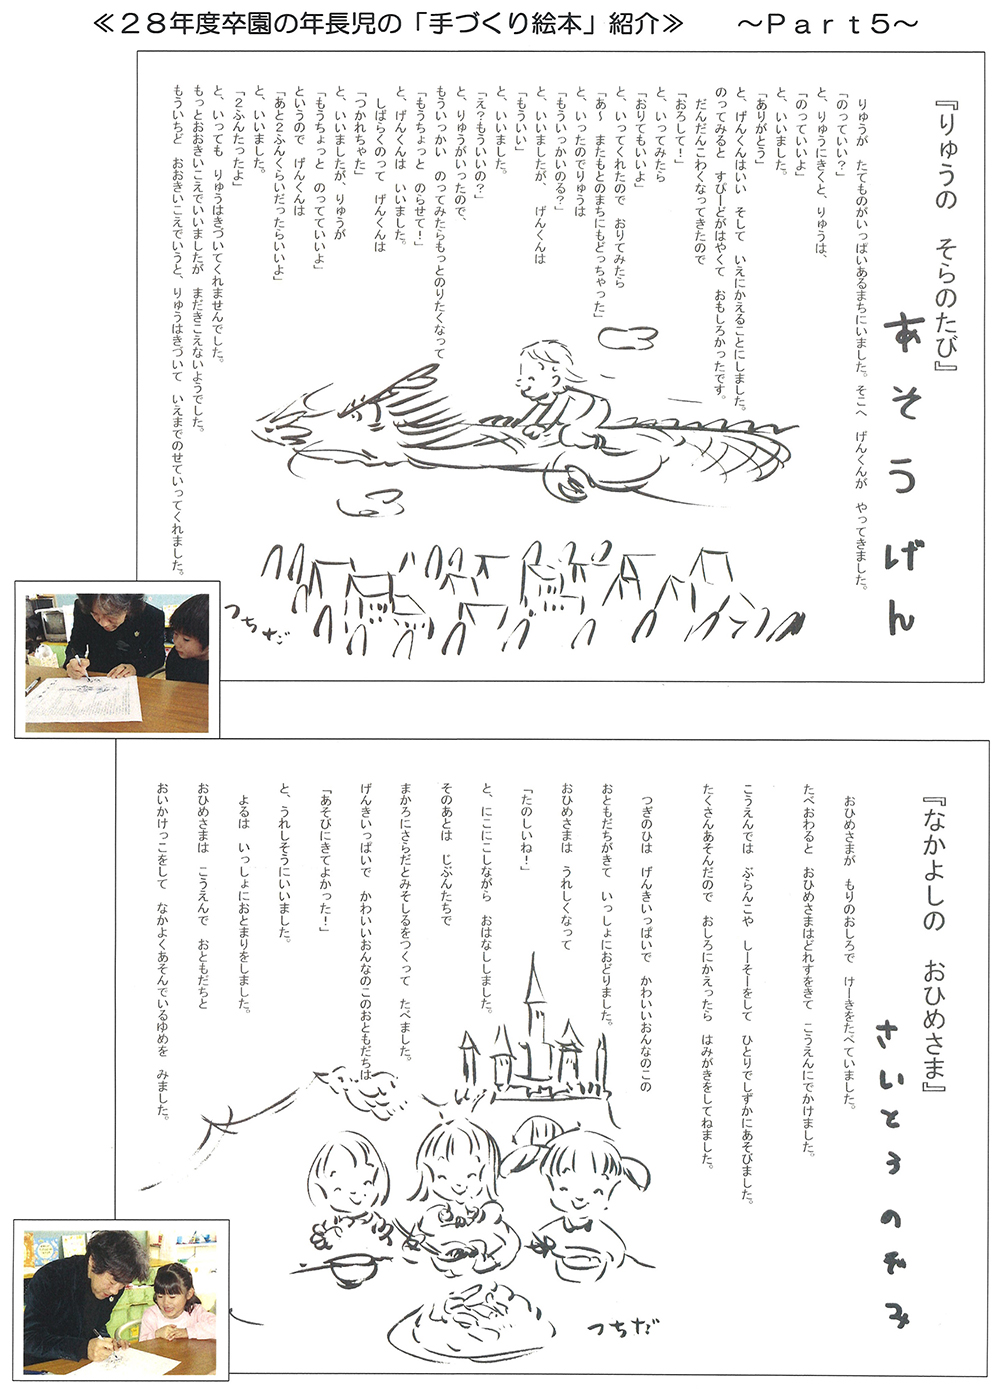 ≪２８年度卒園の年長児の「手づくり絵本」紹介≫　　～Ｐａｒｔ５～
『りゅうの　そらのたび』
あそうげん
りゅうが　たてものがいっぱいあるまちにいました。そこへ　げんくんが　やってきました。
「のっていい？」
と、りゅうにきくと、りゅうは、
「のっていいよ」
と、いいました。
「ありがとう」
と、げんくんはいい　そして　いえにかえることにしました。
のってみると　すぴーどがはやくて　おもしろかったです。
だんだんこわくなってきたので
「おろして！」
と、いってみたら
「おりてもいいよ」
と、いってくれたので　おりてみたら
「あ～　またもとのまちにもどっちゃった」
と、いったのでりゅうは
「もういっかいのる？」
と、いいましたが、　げんくんは
「もういい」
と、いいました。
「え？もういいの？」
と、りゅうがいったので、
もういっかい　のってみたらもっとのりたくなって
「もうちょっと　のらせて！」
と、げんくんは　いいました。
しばらくのって　げんくんは
「つかれちゃた」
と、いいましたが、りゅうが
「もうちょっと　のってていいよ」
というので　げんくんは
「あと２ふんくらいだったらいいよ」
と、いいました。
「２ふんたったよ」
と、いっても　りゅうはきづいてくれませんでした。
もっとおおきいこえでいいましたが　まだきこえないようでした。
もういちど　おおきいこえでいうと、りゅうはきづいて　いえまでのせていってくれました。
つちだ
『なかよしの　おひめさま』
さいとうのぞみ
おひめさまが　もりのおしろで　けーきをたべていました。
たべおわると　おひめさまはどれすをきて　こうえんにでかけました。
こうえんでは　ぶらんこや　しーそーをして　ひとりでしずかにあそびました。
たくさんあそんだので　おしろにかえったら　はみがきをしてねました。
つぎのひは　げんきいっぱいで　かわいいおんなのこの
おともだちがきて　いっしょにおどりました。
おひめさまは　うれしくなって
「たのしいね！」
と、にこにこしながら　おはなししました。
そのあとは　じぶんたちで
まかろにさらだとみそしるをつくって　たべました。
げんきいっぱいで　かわいいおんなのこのおともだちは
「あそびにきてよかった！」
と、うれしそうにいいました。
よるは　いっしょにおとまりをしました。
おひめさまは　こうえんで　おともだちと
おいかけっこをして　なかよくあそんでいるゆめを　みました。
つちだ